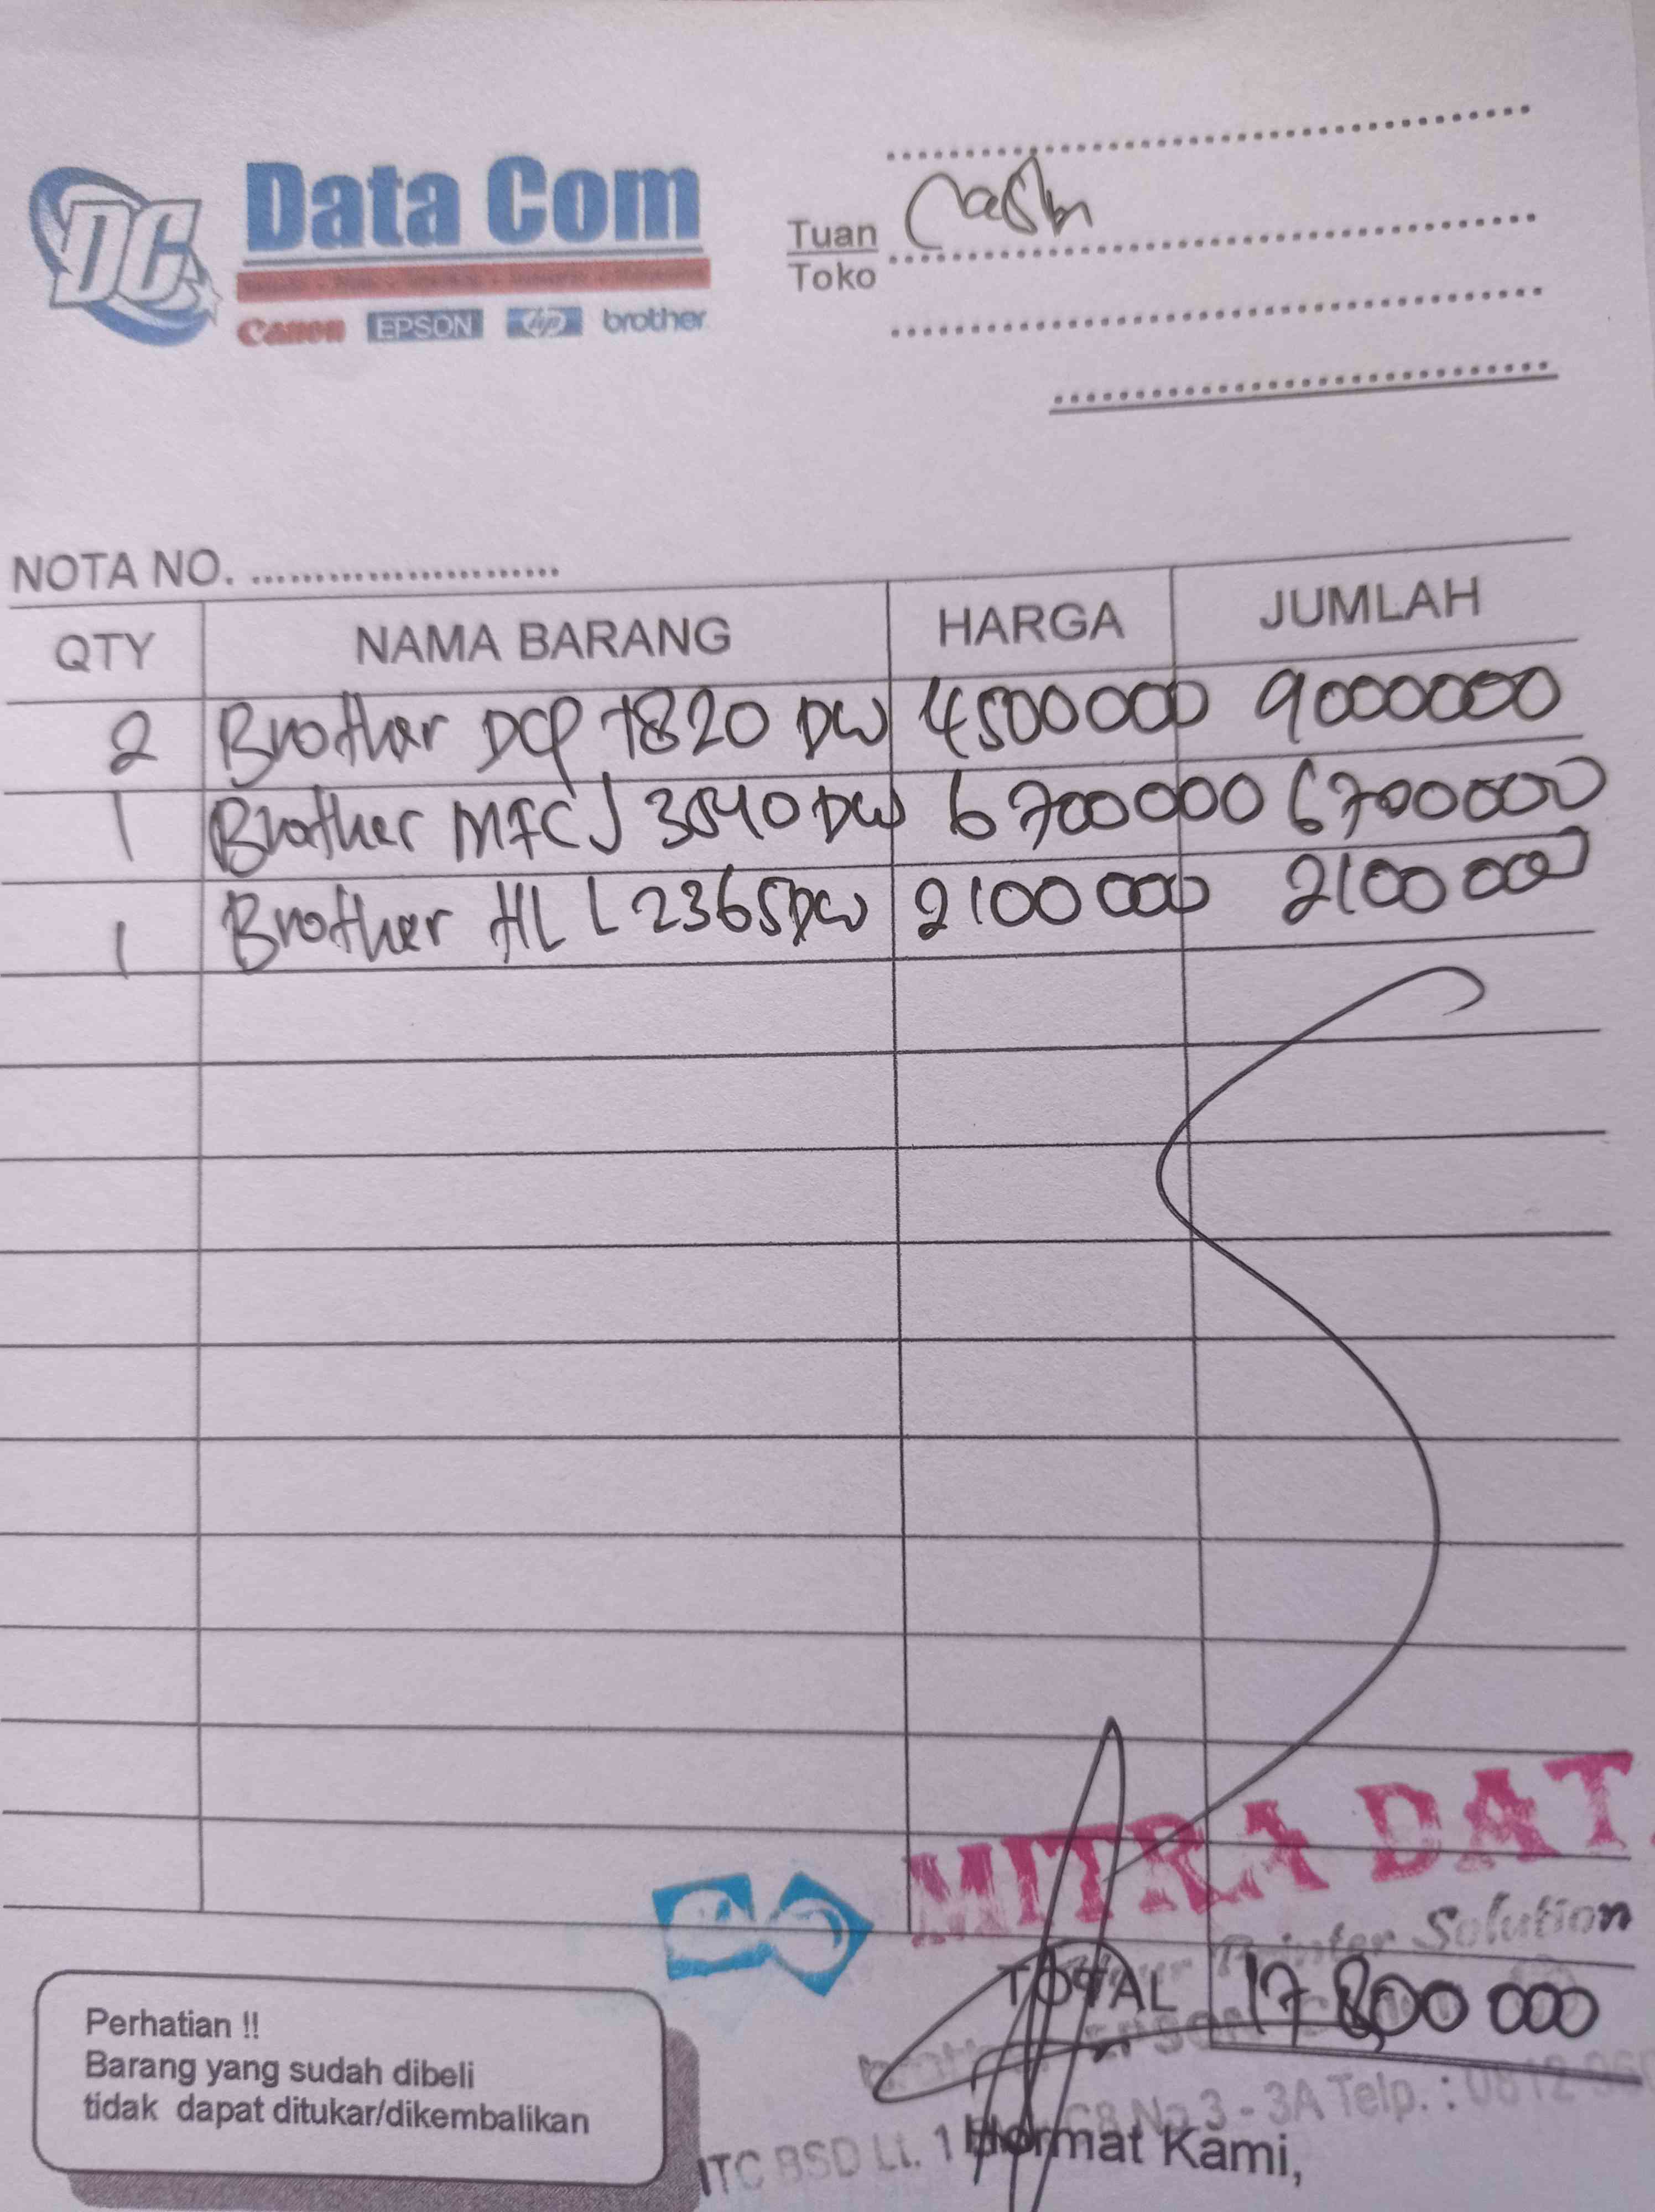 DC
Data Com
Canon EPSON hp brother
Cash
Tuan
Toko
NOTA NO.
QTY NAMA BARANG HARGA JUMLAH
2 Brother DCP T820 DW 4500000 9000000
1 Brother MFC J 3540 DW 6700000 6700000
1 Brother HL L 2365 DW 2100 000 2100 000
MITRA DAT
Printer Solution
TOTAL 17 800 000
EPSON
ITC BSD Lt. 1 No 3 - 3A Telp. : 0812
Hormat Kami,
Perhatian !!
Barang yang sudah dibeli
tidak dapat ditukar/dikembalikan